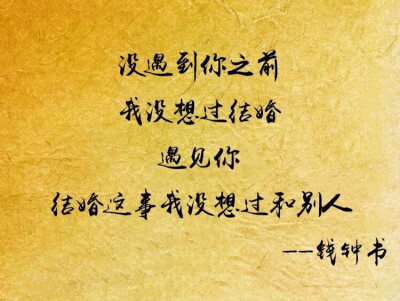 没遇到你之前
我没想过结婚
遇见你
结婚这事我没想过和别人
--钱钟书